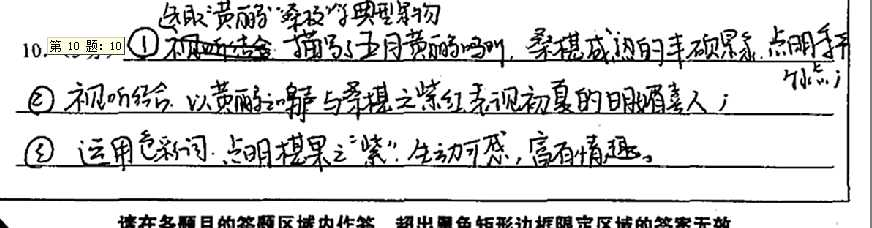 选取“黄鹂”“桑枝”等典型景物
10. 第 10 题: 10 ① 描写了五月黄鹂鸣叫、桑椹成熟的丰硕景象，点明季节
特点；
② 视听结合，以黄鹂之声与桑椹之紫红表现初夏的明媚喜人；
③ 运用色彩词，点明椹果之“紫”，生动可感，富有情趣。
请在各题目的答题区域内作答，超出黑色矩形边框限定区域的答案无效